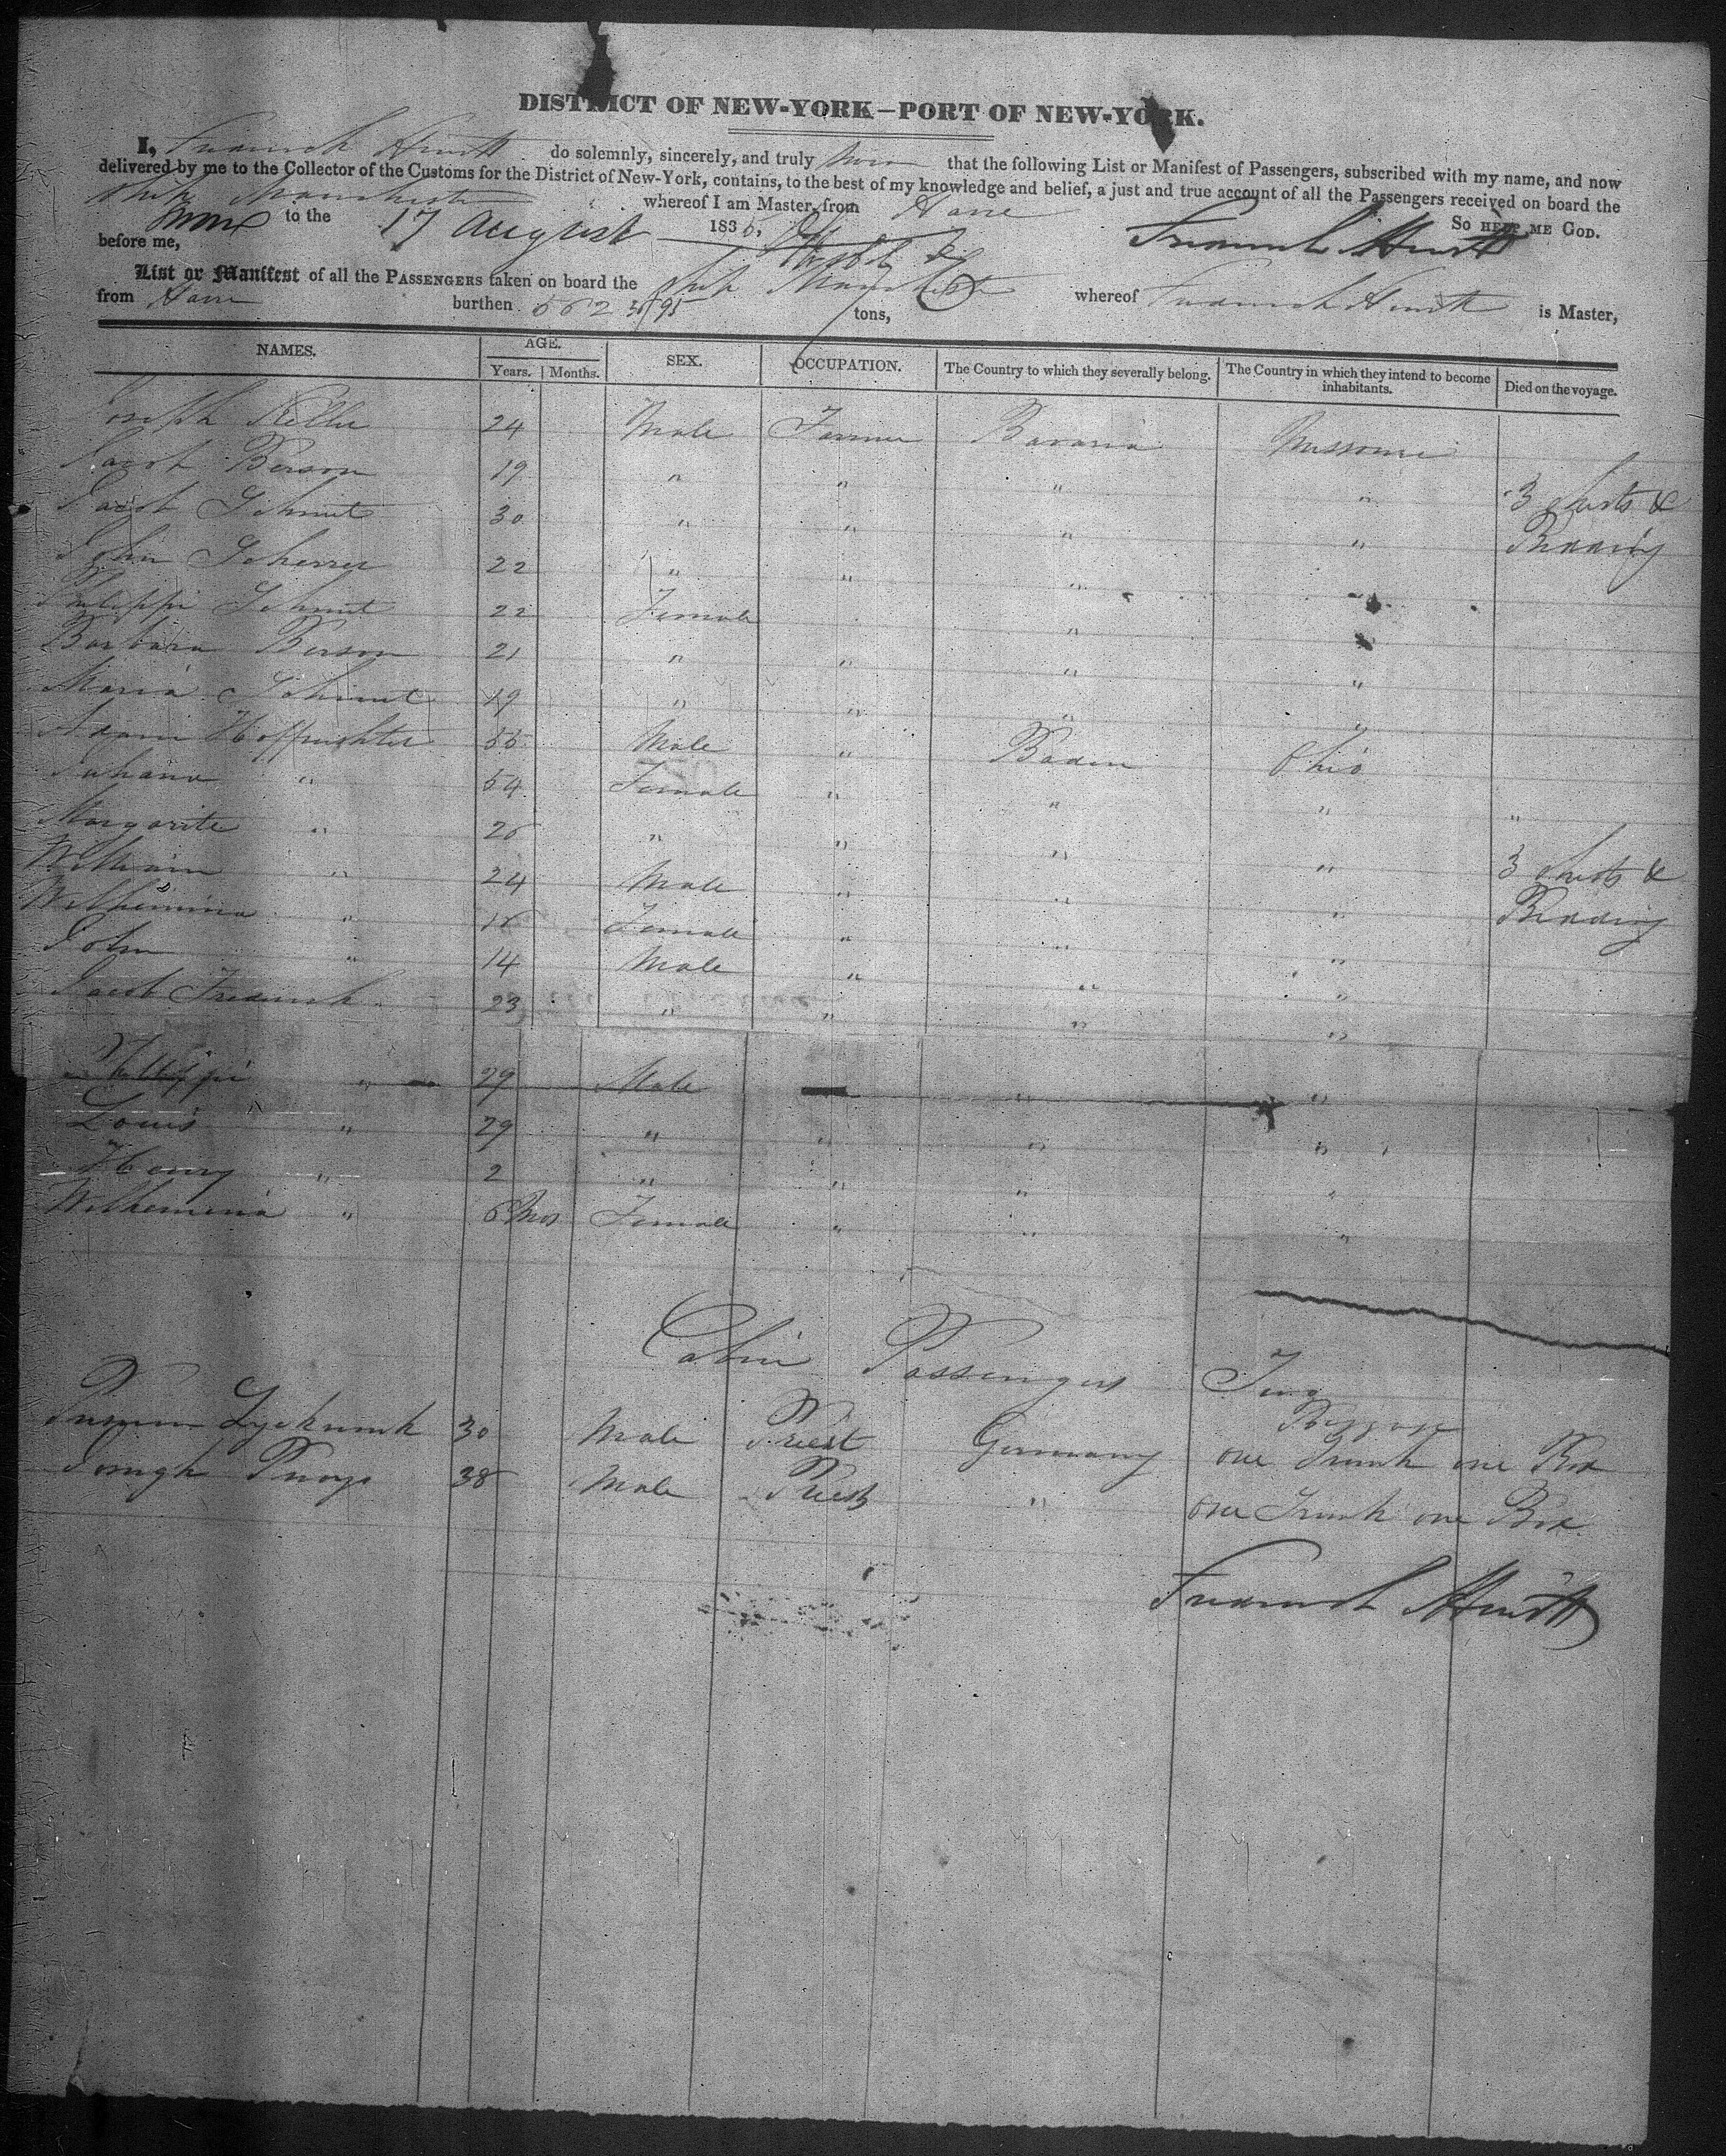 DISTRICT OF NEW-YORK—PORT OF NEW-YORK.
I, Frederick Hewitt do solemnly, sincerely, and truly swear that the following List or Manifest of Passengers, subscribed with my name, and now
delivered by me to the Collector of the Customs for the District of New-York, contains, to the best of my knowledge and belief, a just and true account of all the Passengers received on board the
Ship Manchester whereof I am Master, from Havre
to the 17 August 1836. So HELP ME GOD.
before me, Frederick Hewitt
List or Manifest of all the PASSENGERS taken on board the Ship Manchester whereof Frederick Hewitt is Master,
from Havre burthen 562 tons,
NAMES. AGE. SEX. OCCUPATION. The Country to which they severally belong. The Country in which they intend to become inhabitants. Died on the voyage.
Years. Months.
Joseph Keller 24 Male Farmer Bavaria Missourie
Jacob Berson 19 " " " " 3 Chests &
Jacob Schmit 30 " " " " Bedding
John Scherrer 22 " " " "
Philippi Schmit 22 Female " "
Barbara Berson 21 " " " "
Maria Schmit 19 " " " "
Adam Hoffrichter 55 Male " Baden Ohio
Juhana " 54 Female " " " "
Margarite " 26 " " " " 3 Chests &
William " 24 Male " " " Bedding
Wilhemina " Female " " "
John " 14 Male " " "
Jacob Frederick 23 " " " "
Phillippi " 29 Male " "
Louis " 29 " " " "
Henry " 2 " " " "
Wilhemina " 6 Mos Female " " "
Cabin Passengers Two
Baggage
30 Male Priest Germany one Trunk one Box
Joseph 38 Male Priest " one Trunk one Box
Frederick Hewitt